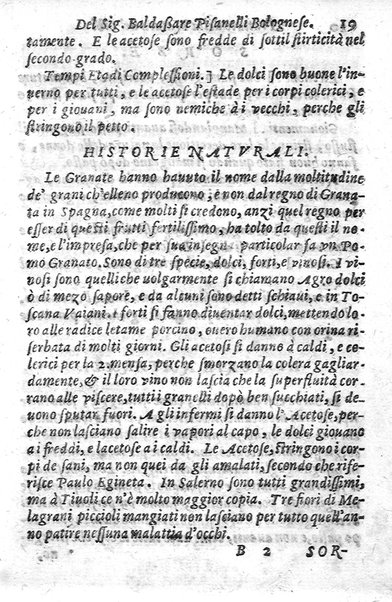 Del Sig. Baldaßare Pisanelli Bolognese. 19
tamente. E le acetose sono fredde di sottil stirticità nel
secondo grado.
Tempi Età di Complessioni.] Le dolci sono buone l'in
uerno per tutti, e le acetose l'estade per i corpi colerici, e
per i giouani, ma sono nemiche à i vecchi, perche gli
stringono il petto.
HISTORIE NATVRALI.
Le Granate hanno hauuto il nome dalla moltitudine
de' grani ch'elleno producono, e non dal regno di Grana
ta in Spagna, come molti si credono, anzi quel regno per
esser di questi frutti fertilissimo, ha tolto da questi il no
me, e l'impresa, che per sua insegna particolar fa vn Po
mo Granato. Sono di tre spècie, dolci, forti, e vinosi. I vi
nosi sono quelli che uolgarmente si chiamano Agro dolci
ò di mezo sapore, e da alcuni sono detti schiaui, e in To
scana Vaiani. i forti si fanno diuentar dolci, mettendo lo
ro alle radice letame porcino, ouero humano con orina ri
serbata di molti giorni. Gli acetosi si danno à caldi, e ce-
lerici per la 2. mensa, perche smorzano la colera gagliar
damente, & il loro vino non lascia che la superfluità cor
rano alle viscere, tutti i granelli dopò ben succhiati, si de
uono sputar fuori. A gli infermi si danno l'Acetose, per-
che non lasciano salire i vapori al capo, le dolci giouano
ai freddi, e lacetose ai caldi. Le Acetose, stringono i cor-
pi de sani, ma non quei da gli amalati, secondo che rife-
risce Paulo Egineta. In Salerno sono tutti grandissimi,
ma à Tiuoli ce n'è molto maggior copia. Tre fiori di Me-
lagrani piccioli mangiati non lasciano per tutto quell'an-
no patire nessuna malattia d'occhi.
B 2 SOR-